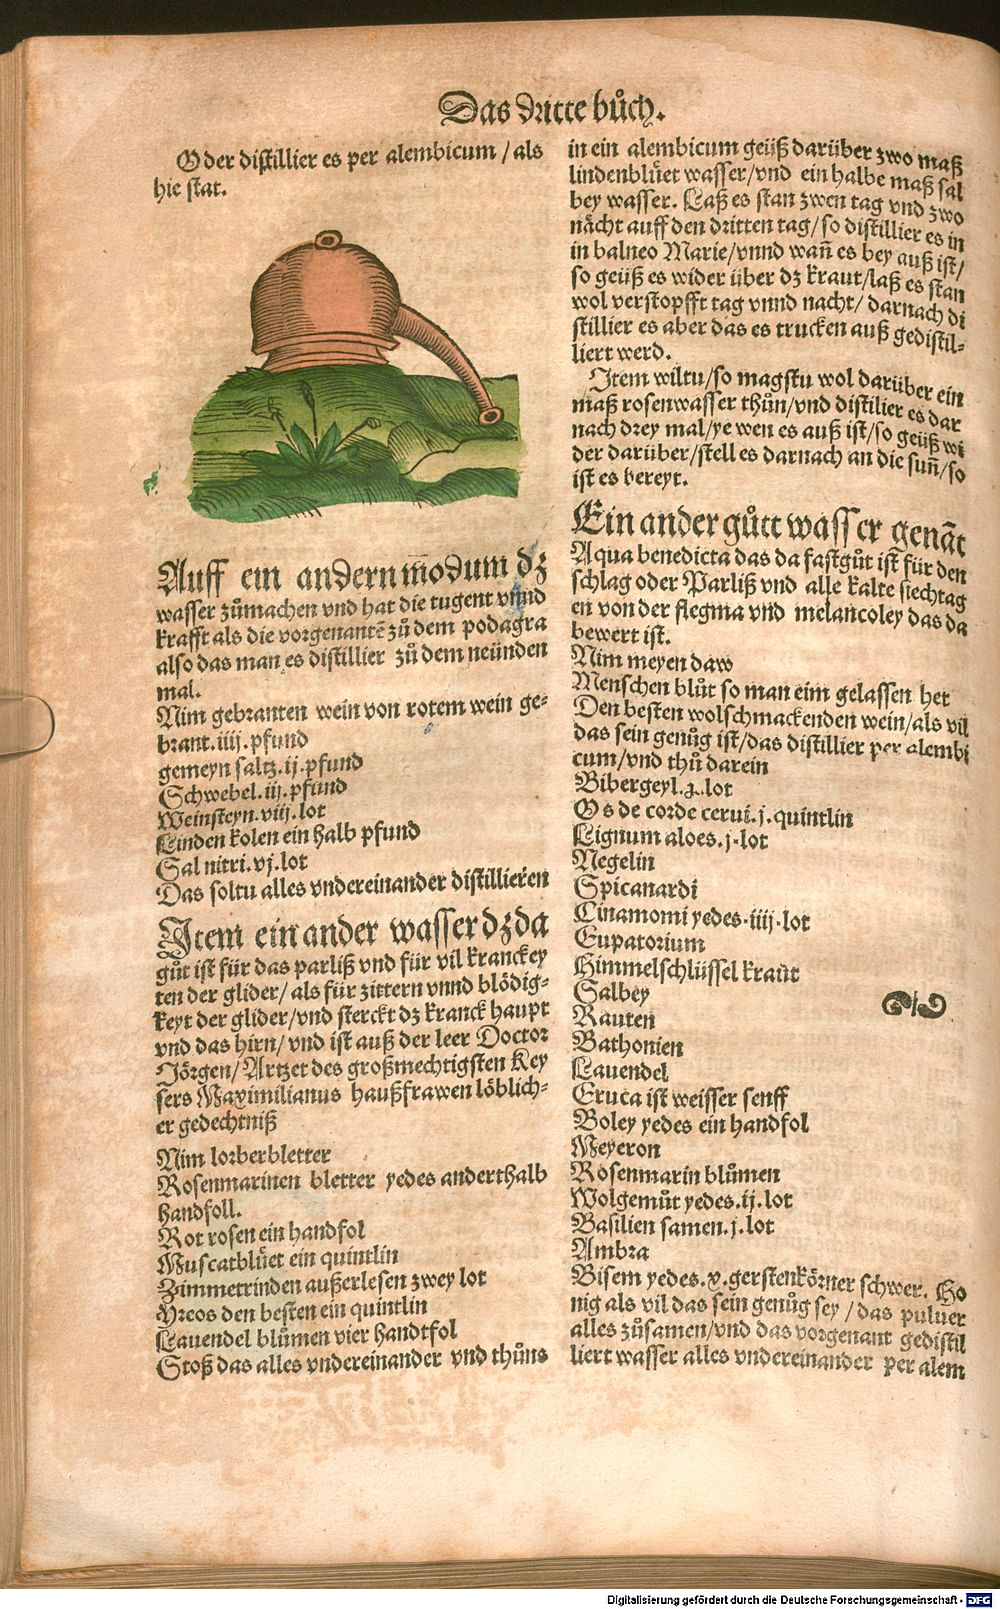 Das dritte bůch.
Oder distillier es per alembicum / als
hie stat.
Auff ein andern m̄odum dz
wasser zůmachen vnd hat die tugent vnnd
krafft als die vorgenantē zů dem podagra
also das man es distillier zů dem neünden
mal.
Nim gebranten wein von rotem wein ge⸗
brant .iiij. pfund
gemeyn saltz .ij. pfund
Schwebel .iij. pfund
Weinsteyn .viij. lot
Linden kolen ein halb pfund
Sal nitri .vj. lot
Das soltu alles vndereinander distillieren
Item ein ander wasser dz da
gůt ist für das parliß vnd für vil kranckey
ten der glider / als für zittern vnnd blödig⸗
keyt der glider / vnd sterckt dz kranck haupt
vnd das hirn / vnd ist auß der leer Doctor
Jörgen / Artzet des großmechtigsten Key
sers Maximilianus haußfrawen löblich⸗
er gedechtniß
Nim lorberbletter
Rosenmarinen bletter yedes anderthalb
handfoll.
Rot rosen ein handfol
Muscatblüet ein quintlin
Zimmetrinden außerlesen zwey lot
Yreos den besten ein quintlin
Lauendel blůmen vier handtfol
Stoß das alles vndereinander vnd thůns
in ein alembicum geüß darüber zwo maß
lindenblüet wasser / vnd ein halbe maß sal
bey wasser. Laß es stan zwen tag vnd zwo
nächt auff den dritten tag / so distillier es in
in balneo Marie / vnnd wañ es bey auß ist /
so geüß es wider über dz kraut / laß es stan
wol verstopfft tag vnnd nacht / darnach di
stillier es aber das es trucken auß gedistil⸗
liert werd.
Item wiltu / so magstu wol darüber ein
maß rosenwasser thůn / vnd distilier es dar
nach drey mal / ye wen es auß ist / so geüß wi
der darüber / stell es darnach an die suñ / so
ist es bereyt.
Ein ander gůtt wasser genāt
Aqua benedicta das da fastgůt ist für den
schlag oder Parliß vnd alle kalte siechtag
en von der flegma vnd melancoley das da
bewert ist.
Nim meyen daw
Menschen blůt so man eim gelassen het
Den besten wolschmackenden wein / als vil
das sein genůg ist / das distillier per alembi
cum / vnd thů darein
Bibergeyl .ʒ. lot
Os de corde cerui .j. quintlin
Lignum aloes .j. lot
Negelin
Spicanardi
Cinamomi yedes .iiij. lot
Eupatorium
Himmelschlüssel kraut
Salbey
Rauten
Bathonien
Lauendel
Eruca ist weisser senff
Boley yedes ein handfol
Meyeron
Rosenmarin blůmen
Wolgemůt yedes .ij. lot
Basilien samen .j. lot
Ambra
Bisem yedes .x. gerstenkörner schwer. Ho
nig als vil das sein genůg sey / das puluer
alles zůsamen / vnd das vorgenant gedistil
liert wasser alles vndereinander per alem
Digitalisierung gefördert durch die Deutsche Forschungsgemeinschaft - DFG